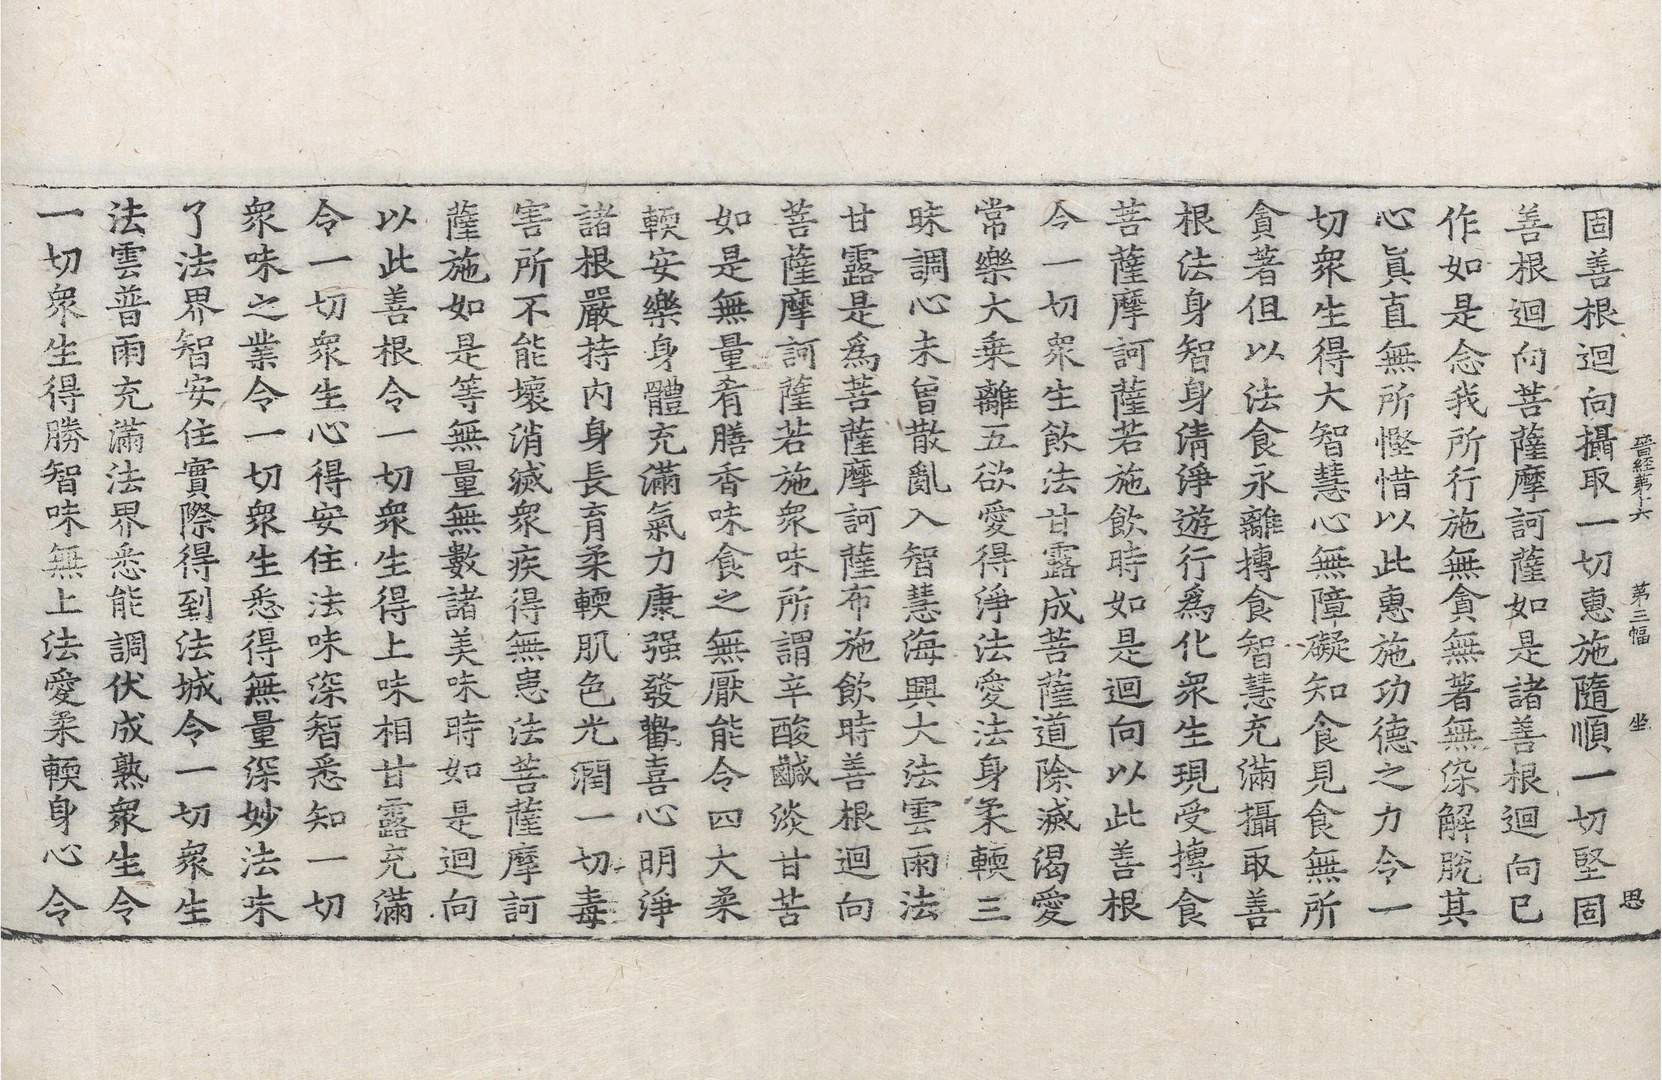 晉經第十六 第三幅 坐 思
固善根迴向攝取一切惠施隨順一切堅固
善根迴向菩薩摩訶薩如是諸善根迴向已
作如是念我所行施無貪無著無染解脫其
心眞直無所慳惜以此惠施功德之力令一
切衆生得大智慧心無障礙知食見食無所
貪著但以法食永離摶食智慧充滿攝取善
根法身智身清淨遊行爲化衆生現受摶食
菩薩摩訶薩若施飮時如是迴向以此善根
令一切衆生飮法甘露成菩薩道除滅渴愛
常樂大乘離五欲愛得淨法愛法身柔輭三
昧調心未曾散亂入智慧海興大法雲雨法
甘露是爲菩薩摩訶薩布施飮時善根迴向
菩薩摩訶薩若施衆味所謂辛酸鹹淡甘苦
如是無量肴膳香味食之無厭能令四大柔
輭安樂身體充滿氣力康强發歡喜心明淨
諸根嚴持內身長育柔輭肌色光潤一切毒
害所不能壞消滅衆疾得無患法菩薩摩訶
薩施如是等無量無數諸美味時如是迴向
以此善根令一切衆生得上味相甘露充滿
令一切衆生心得安住法味深智悉知一切
衆味之業令一切衆生悉得無量深妙法味
了法界智安住實際得到法城令一切衆生
法雲普雨充滿法界悉能調伏成熟衆生令
一切衆生得勝智味無上法愛柔輭身心令